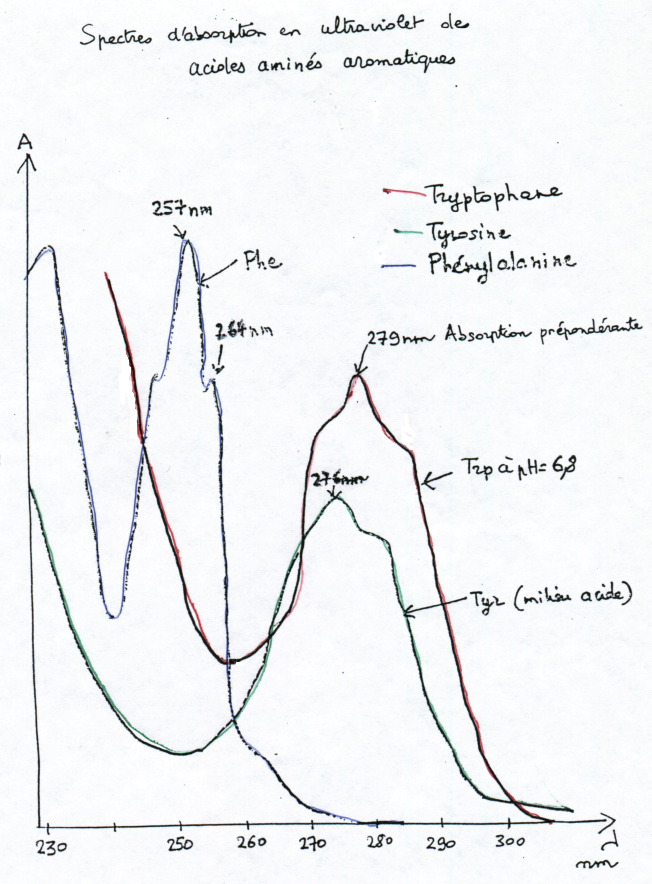 Spectres d'absorption en ultraviolet des
acides aminés aromatiques
A
Tryptophane
Tyrosine
Phénylalanine
257nm
Phe
264nm
279nm Absorption prépondérante
Trp à pH=6,8
276nm
Tyr (milieu acide)
230 250 260 270 280 290 300
nm